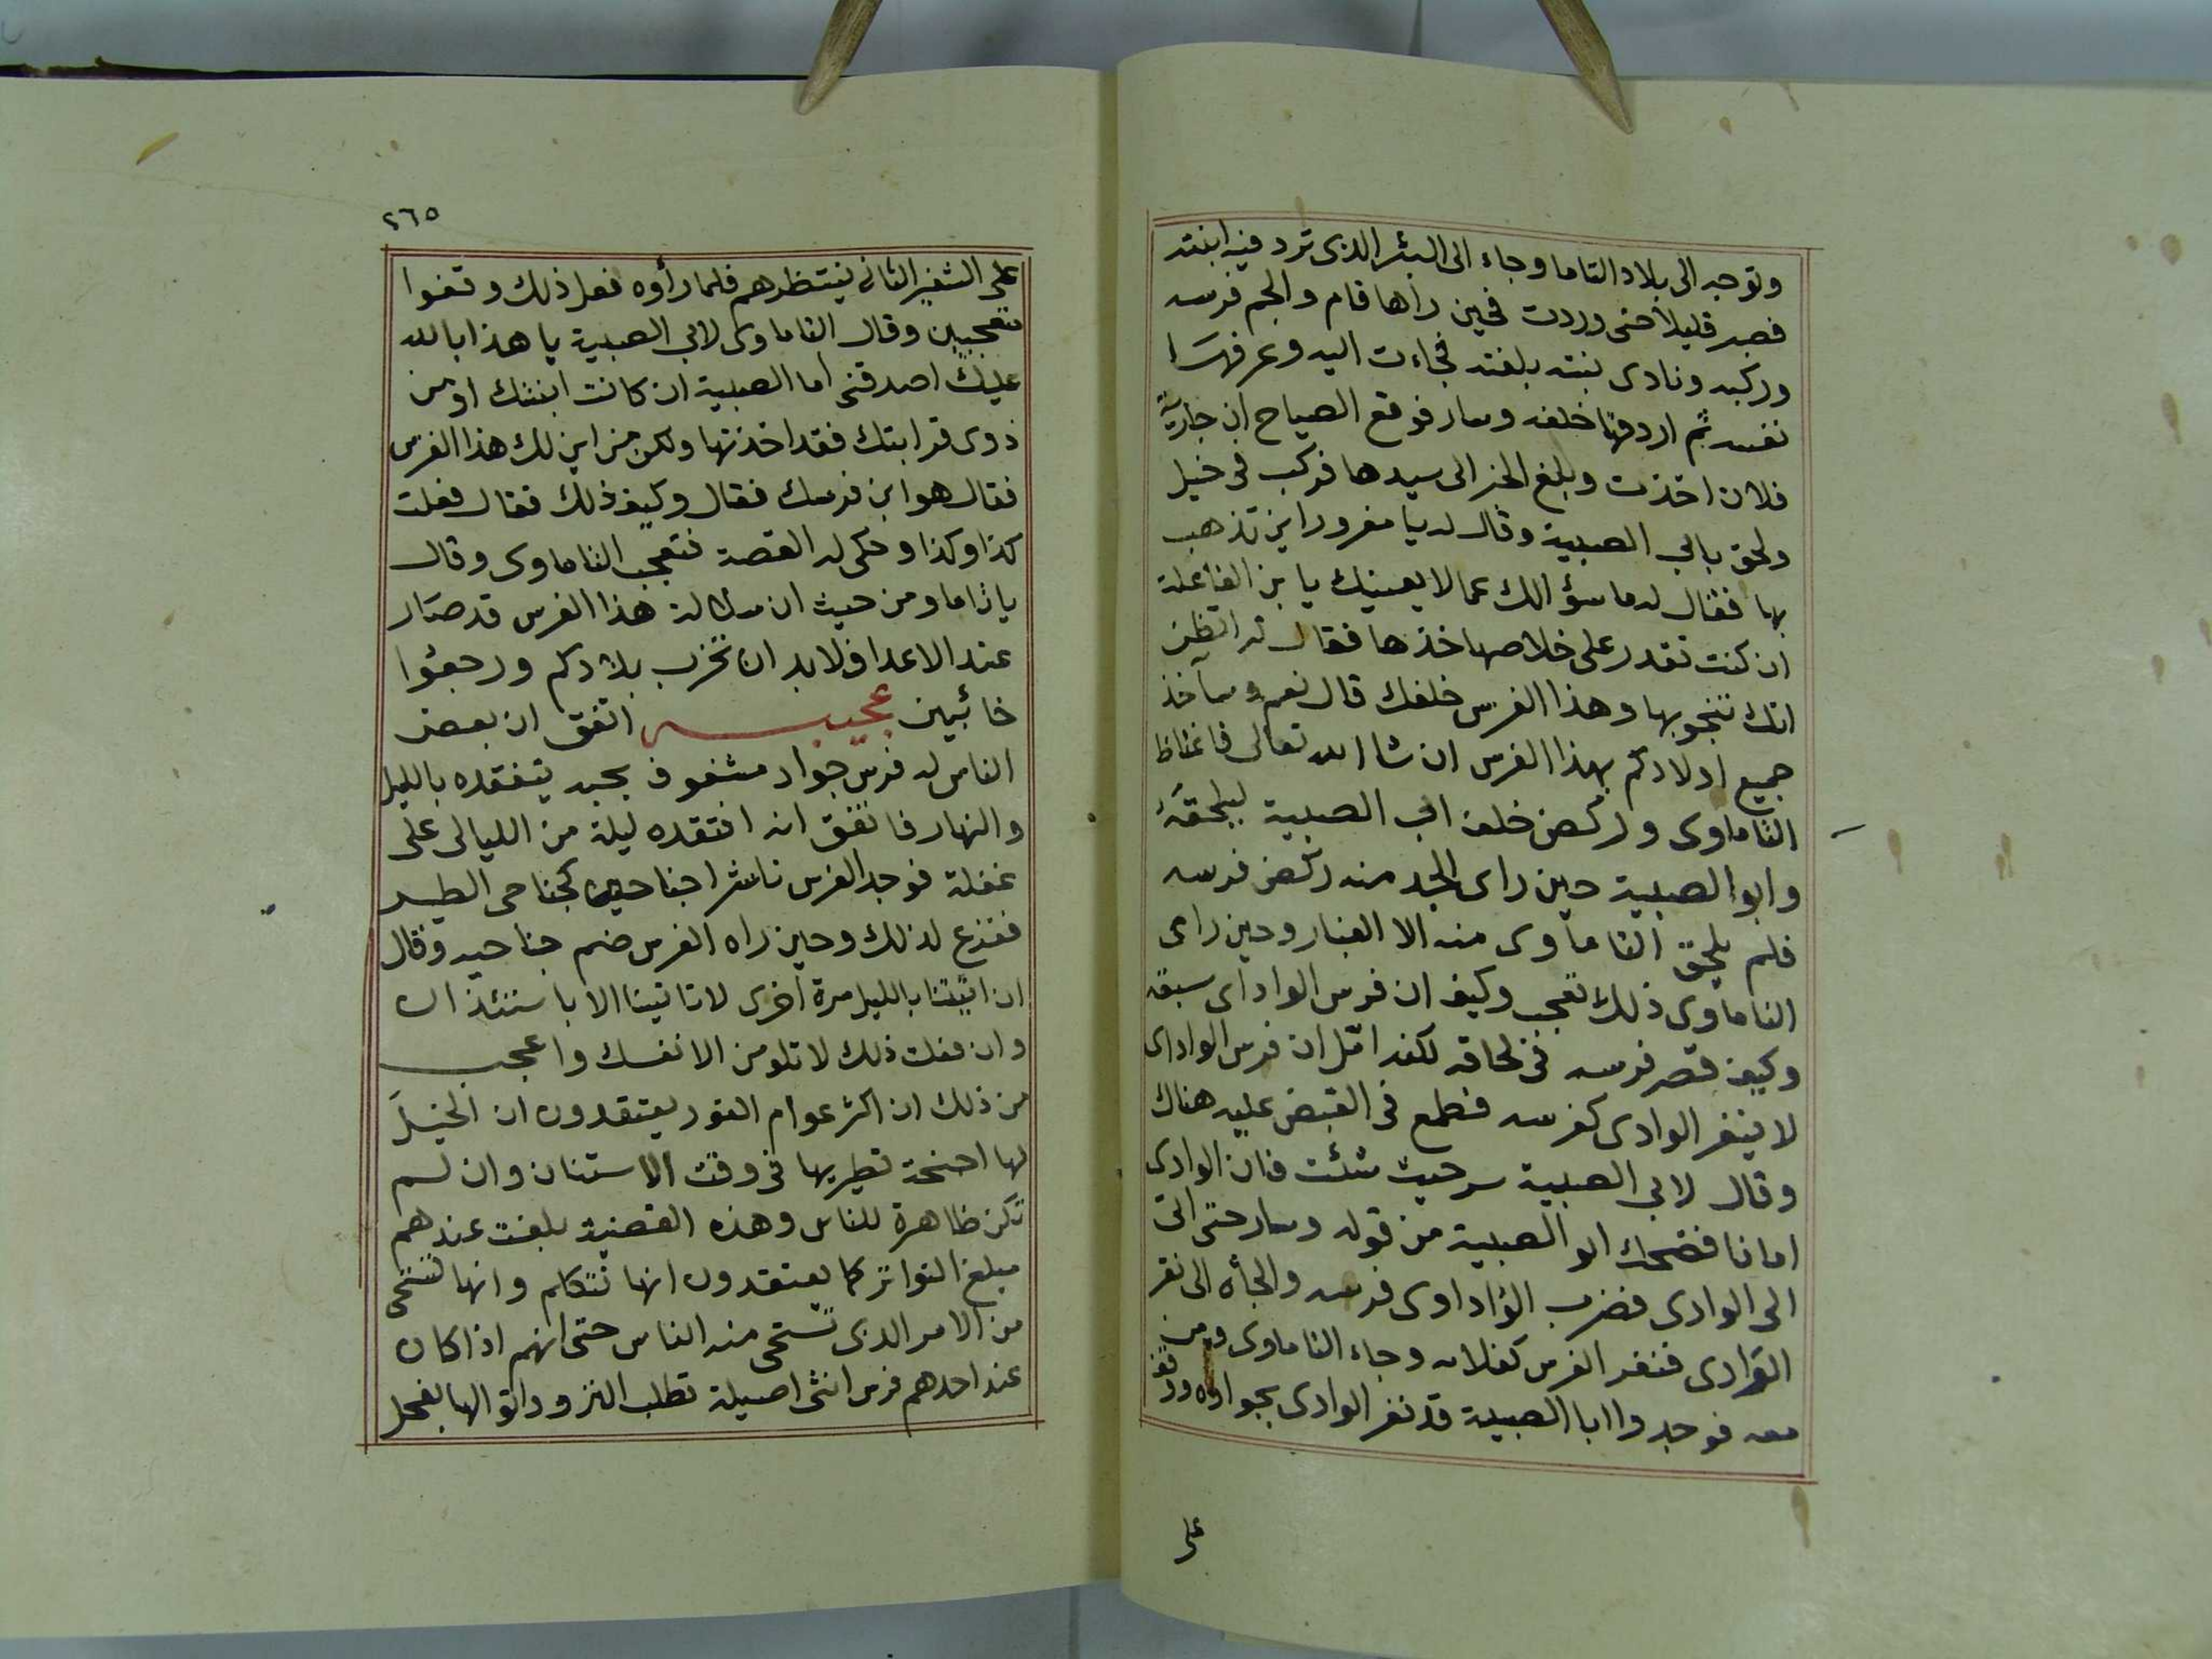 وتوجه الى بلاد التاما وجاء الى البئر الذى ترد فيه ابنته
فصبر قليلا حتى وردت فحين رآها قام والجم فرسه
وركبه ونادى بنته بلغته فجاءت اليه وعرفها
نفسه ثم اردفها خلفه وسار فوقع الصياح ان جارية
فلان اخذت وبلغ الخبر الى سيدها فركب فى خيل
ولحق بابى الصبية وقال له يا مغرور اين تذهب
بها فقال له ما سؤالك عما لا يعنيك يا بن الفاعلة
ان كنت تقدر على خلاصها خذها فقال له اتظن
انك تنجو بها وهذا الفرس خلفك قال نعم وسآخذ
جميع اولادكم بهذا الفرس ان شا الله تعالى فاغتاظ
التاماوى وركض خلف ابى الصبية ليلحقه
وابو الصبية حين راى الجد منه ركض فرسه
فلم يلحق التاماوى منه الا الغبار وحين راى
التاماوى ذلك تعجب وكيف ان فرس الواداى سبقه
وكيف قصر فرسه فى لحاقه لكنه امّل ان فرس الواداى
لا ينفز الوادى كفرسه فطمع فى القبض عليه هناك
وقال لابى الصبية سر حيث شئت فان الوادى
امامنا فضحك ابو الصبية من قوله وسار حتى اتى
الى الوادى فضرب الواداوى فرسه والجأه الى نفز
الوادى فنفز الفرس كفلان وجاء التاماوى ومن
معه فوجدوا ابا الصبية قد نفز الوادى بجواده ووقف
على
٢٦٥
على الشفير الثانى ينتظرهم فلما رأوه فعل ذلك وقفوا
متعجبين وقال التاماوى لابى الصبية يا هذا بالله
عليك اصدقنى اما الصبية ان كانت ابنتك او من
ذوى قرابتك فقد اخذتها ولكن من اين لك هذا الفرس
فقال هو ابن فرسك فقال وكيف ذلك فقال فعلت
كذا وكذا وحكى له القصة فتعجب التاماوى وقال
يا تاما ومن حيث ان سلالة هذا الفرس قد صار
عند الاعدا فلا بد ان تخرب بلادكم ورجعوا
خائبين عجيبه اتفق ان بعض
الناس له فرس جواد مشغوف بحبه يتفقده بالليل
والنهار فاتفق انه افتقده ليلة من الليالى على
غفلة فوجد الفرس ناشرا جناحين كجناحى الطير
ففزع لذلك وحين راه الفرس ضم جناحيه وقال
ان اتيتنا بالليل مرة اخرى لا تاتينا الا باستئذان
وان فعلت ذلك لا تلومن الا نفسك واعجب
من ذلك ان اكثر عوام الفور يعتقدون ان الخيل
لها اجنحة تطير بها فى وقت الاستنان وان لم
تكن ظاهرة للناس وهذه القضية بلغت عندهم
مبلغ التواتر كما يعتقدون انها تتكلم وانها تستحى
من الامر الذى تستحى منه الناس حتى انهم اذا كان
عند احدهم فرس انثى اصيلة تطلب النزو واتوا لها بفحل